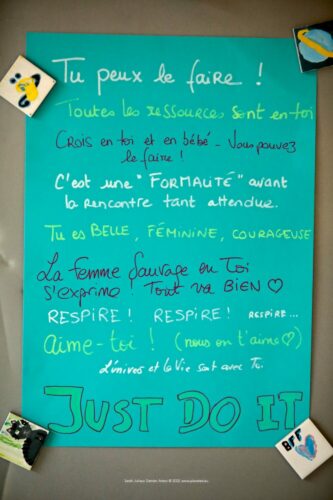 Tu peux le faire !
Toutes les ressources sont en toi
CROIS en toi et en bébé - Vous pouvez
le faire !
C'est une "FORMALITÉ" avant
la rencontre tant attendue.
Tu es BELLE, FÉMININE, COURAGEUSE
La Femme Sauvage en Toi
s'exprime ! Tout va BIEN ♡
RESPIRE ! RESPIRE ! RESPIRE...
aime-toi ! (nous on t'aime ♡)
L'Univers et la Vie sont avec Toi.
JUST DO IT
BFF